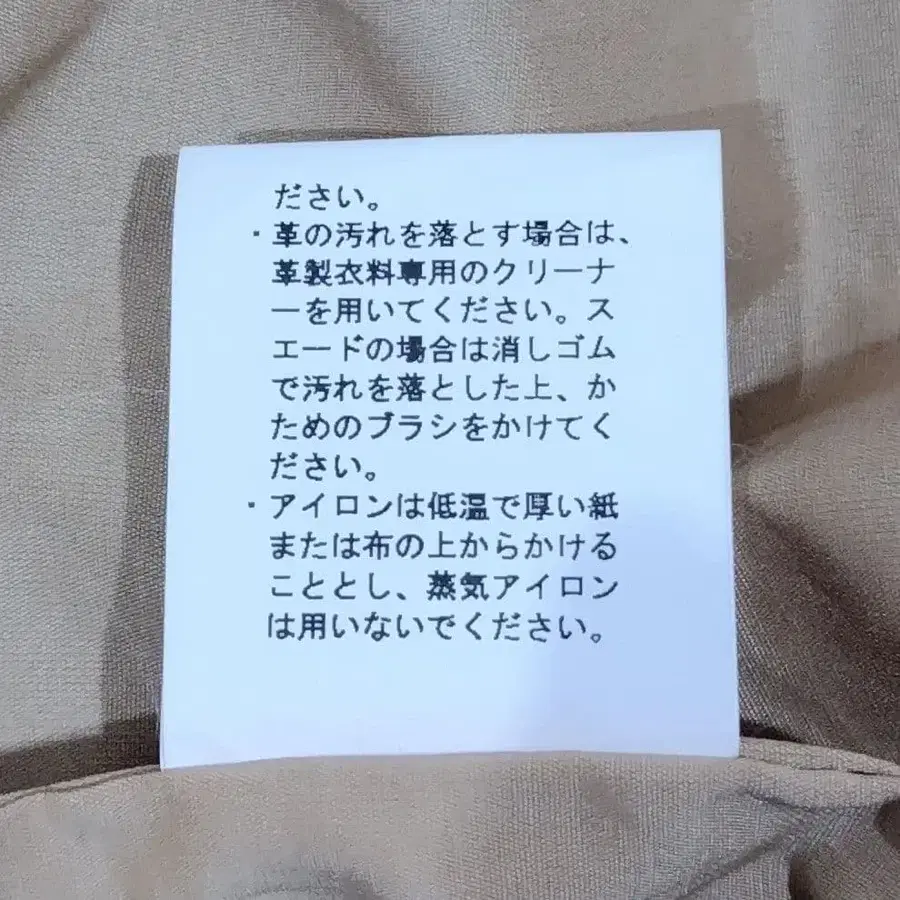 ださい。
・革の汚れを落とす場合は、
革製衣料専用のクリーナ
ーを用いてください。ス
エードの場合は消しゴム
で汚れを落とした上、か
ためのブラシをかけてく
ださい。
・アイロンは低温で厚い紙
または布の上からかける
こととし、蒸気アイロン
は用いないでください。